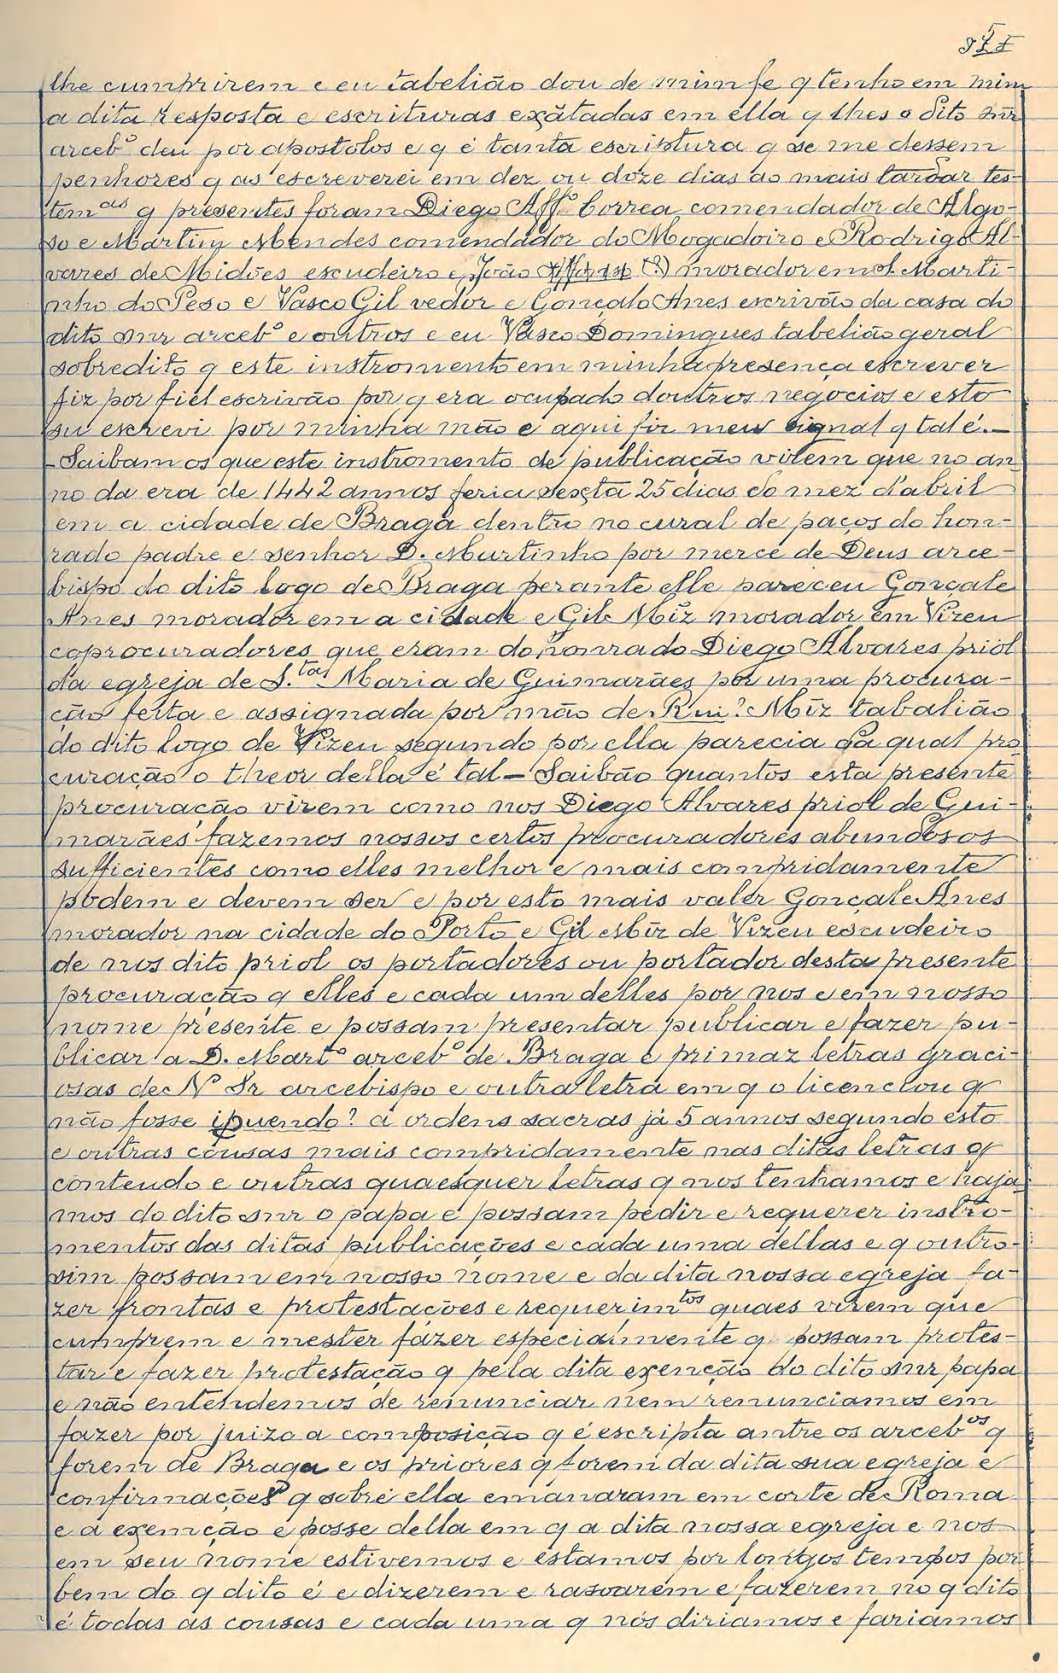 lhe cumprirem e eu tabelião dou de mim fe q tenho em mim
a dita resposta e escrituras exătadas em ella q lhes o dito snr
arcebº deu por apostolos e q é tanta escriptura q se me dessem
penhores q as escreverei em dez ou doze dias ao mais tardar tes-
temᵃˢ q presentes foram Diego Affº Correa comendador de Algo-
so e Martim Mendes comendador do Mogadoiro e Rodrigo Al-
vares de Midões escudeiro e João (?) morador em S. Marti-
nho do Peso e Vasco Gil vedor e Gonçalo Anes escrivão da casa do
dito snr arcebº e outros e eu Vasco Domingues tabelião geral
sobredito q este instromento em minha presença escrever
fiz por fiel escrivão por q era ocupado doutros negocios e esto
su escrevi por minha mão e aqui fiz meu signal q tal é.—
– Saibam os que este instromento de publicação virem que no an
no da era de 1442 annos feria sexta 25 dias do mez d'abril
em a cidade de Braga dentro no cural de paços do hon-
rado padre e senhor D. Martinho por mercé de Deus arce-
bispo do dito logo de Braga perante elle pareceu Gonçale
Anes morador em a cidade e Gil Miz morador em Vizeu
coprocuradores que eram do honrado Diego Alvares priol
da egreja de S.ᵗᵃ Maria de Guimarães por uma procura-
ção feita e assignada por mão de Rui? Miz tabalião
do dito logo de Vizeu segundo por ella parecia da qual pro
curação o theor della é tal – Saibão quantos esta presente
procuração virem como nos Diego Alvares priol de Gui-
marães fazemos nossos certos procuradores abundosos
sufficientes como elles melhor e mais compridamente
podem e devem ser e por esto mais valer Gonçale Anes
morador na cidade do Porto e Gil Miz de Vizeu escudeiro
de nos dito priol os portadores ou portador desta presente
procuração q elles e cada um delles por nos e em nosso
nome presente e possam presentar publicar e fazer pu-
blicar a D. Martº arcebº de Braga e primaz letras graci-
osas de Nº Sr arcebispo e outra letra em q o licenciou q
não fosse ipuendo? a ordens sacras já 5 annos segundo esto
e outras cousas mais compridamente nas ditas letras q
contendo e outras quaesquer letras q nos tenhamos e haja
mos do dito snr o papa e possam pedir e requerer instro-
mentos das ditas publicações e cada uma dellas e q outro-
sim possam em nosso nome e da dita nossa egreja fa-
zer frontas e protestações e requerimᵗᵒˢ quaes virem que
cumprem e mester fazer especialmente q possam protes-
tar e fazer protestação q pela dita exenção do dito snr papa
e não entendemos de renunciar nem renunciamos em
fazer por juizo a composição q é escripta antre os arcebᵒˢ q
forem de Braga e os priores q forem da dita sua egreja e
confirmações q sobre ella emanaram em corte de Roma
e a exemção e posse della em q a dita nossa egreja e nos
em seu nome estivemos e estamos por longos tempos por
bem do q dito é e dizerem e rasoarem e fazerem no q dito
é todas as cousas e cada uma q nós diriamos e fariamos